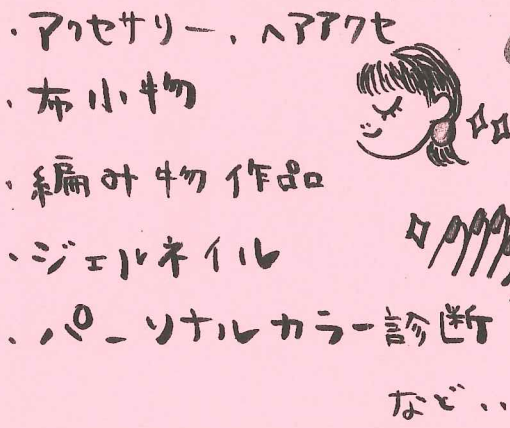 ・アクセサリー、ヘアアクセ
・布小物
・編み物作品
・ジェルネイル
・パーソナルカラー診断
など・・